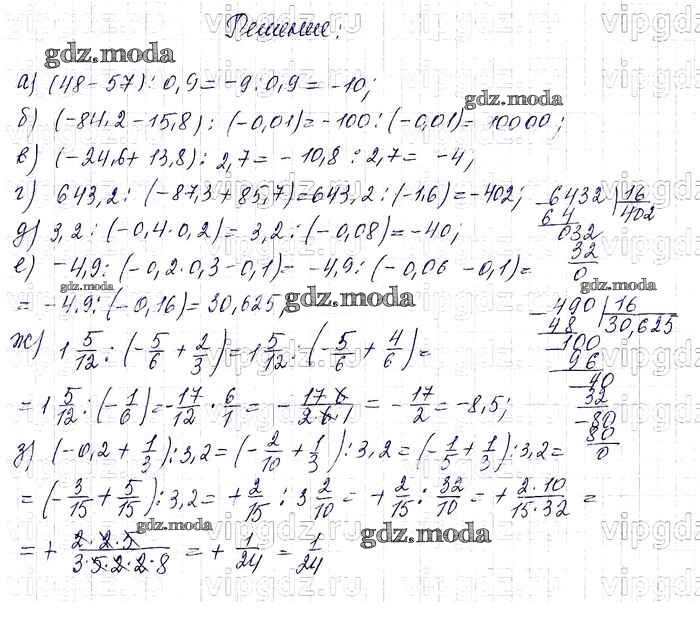 Решение:
gdz.moda
а) (48-57) : 0,9 = -9 : 0,9 = -10;
gdz.moda
б) (-84,2-15,8) : (-0,01) = -100 : (-0,01) = 10000;
в) (-24,6+13,8) : 2,7 = -10,8 : 2,7 = -4;
г) 643,2 : (-87,3+85,7) = 643,2 : (-1,6) = -402;
-6432 | 16
64 402
032
32
0
д) 3,2 : (-0,4·0,2) = 3,2 : (-0,08) = -40;
е) -4,9 : (-0,2·0,3-0,1) = -4,9 : (-0,06-0,1) =
gdz.moda
= -4,9 : (-0,16) = 30,625;
gdz.moda
-490 | 16
48 30,625
-100
96
-40
32
-80
80
0
ж) 1 5/12 : (-5/6 + 2/3) = 1 5/12 : (-5/6 + 4/6) =
= 1 5/12 : (-1/6) = -17/12 · 6/1 = - 17·6/2·6·1 = -17/2 = -8,5;
з) (-0,2 + 1/3) : 3,2 = (-2/10 + 1/3) : 3,2 = (-1/5 + 1/3) : 3,2 =
= (-3/15 + 5/15) : 3,2 = +2/15 : 3 2/10 = +2/15 : 32/10 = + 2·10/15·32 =
gdz.moda
gdz.moda
= + 2·2·5/3·5·2·2·8 = + 1/24 = 1/24
vipgdz.ru